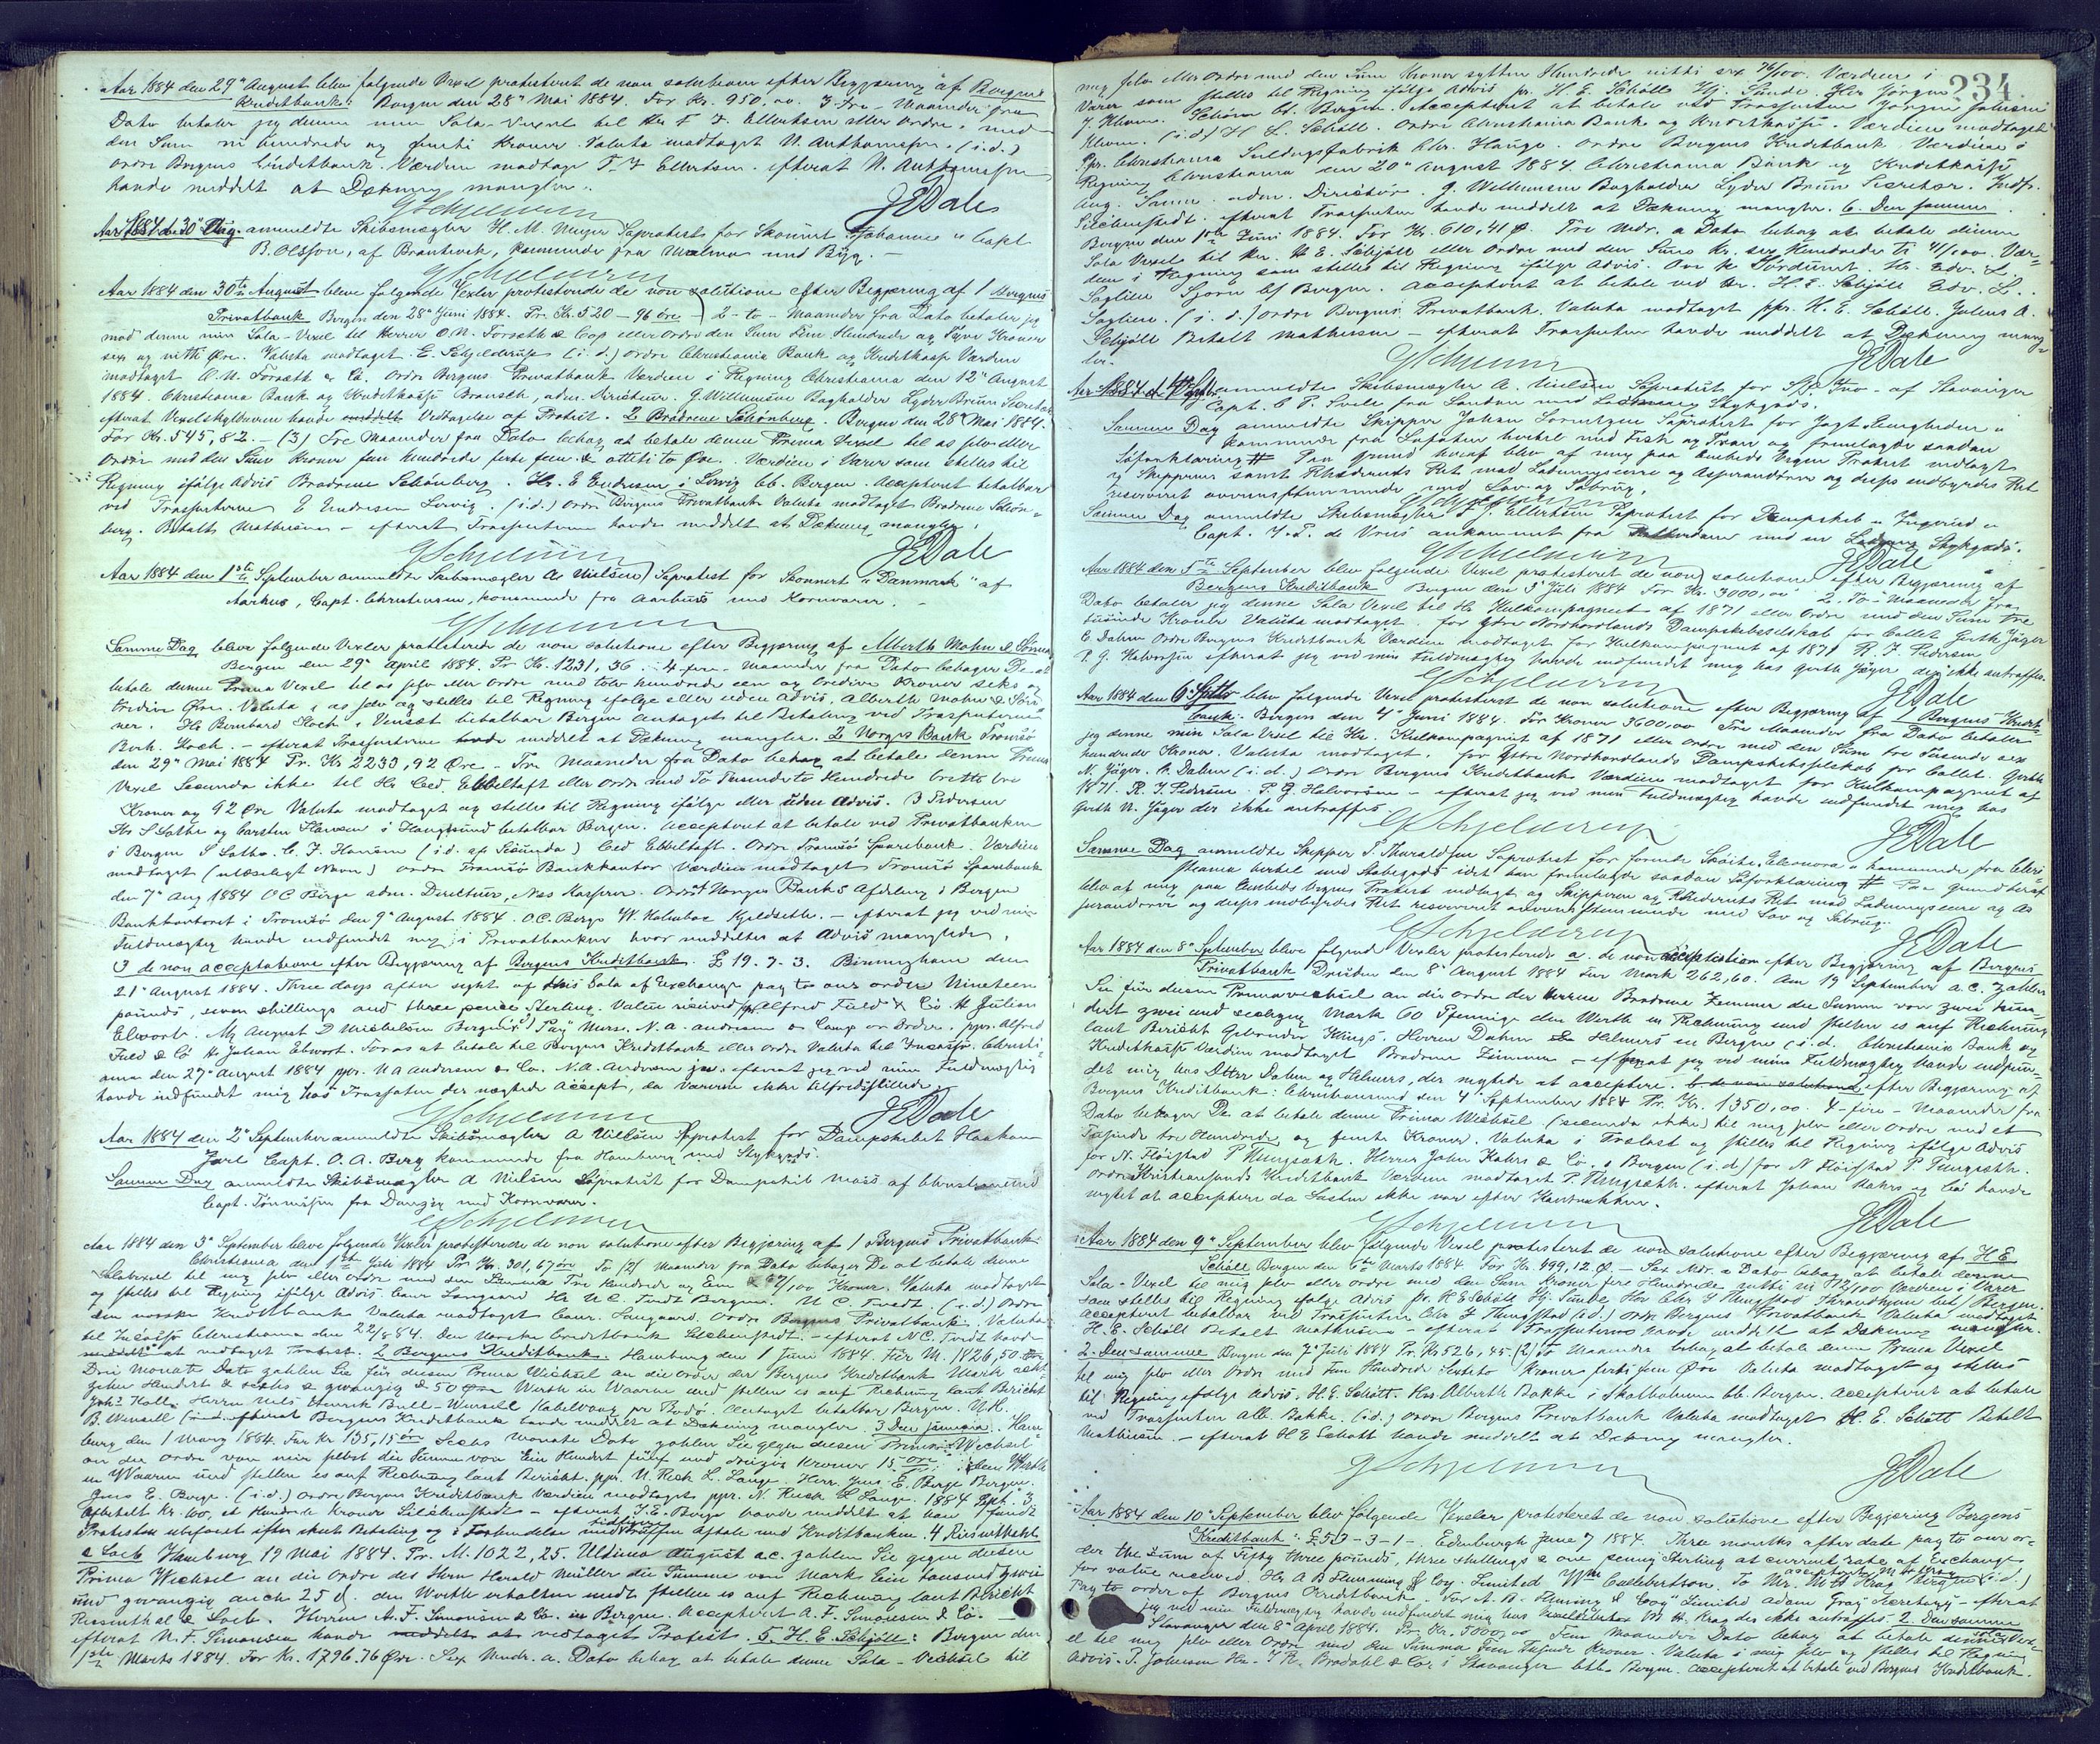 Aar 1884 den 29de August blev følgende Vexel protesteret de non solutione efter Begjæring af Bergens
Kreditbank: Bergen den 28de Mai 1884. For Kr. 950,00. 3 - tre - Maaneder fra
Dato betaler jeg denne min Sola-Vexel til Hr T. F. Ellertsen eller Ordre, med
den Sum ni hundrede og femti Kroner. Valuta modtaget N. Anthonisen. (i.d.)
ordre Bergens Creditbank. Værdien modtaget T. F. Ellertsen. efterat N. Anthonisen
havde meddelt at Dækning mangler.
GSchjelderup JEDale
Aar 1884 de 30te Aug. anmeldte Skibsmægler H. M. Meyer Søprotest for Skonnert "Johanne" Capt
B. Olsson, af Brantevik, kommende fra Malmø med Byg. -
GSchjelderup
Aar 1884 den 30te August bleve følgende Vexler protesterede de non solutione efter Begjæring af 1 Bergens
Privatbank Bergen den 28de Juni 1884. Fr. Kr. 520 - 96 øre - 2 - to - Maaneder fra Dato betaler jeg
mod denne min Sola-Vexel til Herrer O. N. Forseth & Cop eller Ordre den Sum Fem Hundrede og Tyve Kroner
sex og nitti Øre. Valuta modtaget. E. Schjelderup (i.d.) ordre Christiania Bank og Kreditkasse Værdien
modtaget O. N. Forseth & Co. Ordre Bergens Privatbank Værdien i Regning Christiania den 12te August
1884. Christiania Bank og Kreditkasse Brunsch, adm. Direkteur. G. Willumsen Bogholder Lyder Brun Secretær
efterat Vexelskyldneren havde meddelt Vedtagelse af Protest. 2 Brødrene Schønberg. Bergen den 28 Mai 1884.
For Kr. 545,82. - (3) Tre Maaneder fra Dato behag at betale denne Prima Vexel til os selv eller
Ordre med den Sum Kroner fem hundrede førti fem & otteti to Øre. Værdien i Varer som stilles til
Regning ifølge Advis Brødrene Schønberg. Hr. E Endresen i Lervig bb. Bergen. Accepteret betalbar
ved Trassenterne E Endresen Lervig. (i.d.) ordre Bergens Privatbank Valuta modtaget Brødrene Schøn-
berg. Betalt Mathiesen - efterat Trassenterne havde meddelt at Dækning mangler.
GSchjelderup JEDale
Aar 1884 den 1ste September anmeldte Skibsmægler A. Nielsen Søprotest for Skonnert "Danmark" af
Aarhus, Capt. Christensen, kommende fra Aarhuus med Kornvarer. -
GSchjelderup
Samme Dag bleve følgende Vexler protesterede de non solutione efter Begjæring af Alberth Mohn & Sønner
Bergen den 29de April 1884. Fr Kr. 1231,36. - 4 fire - Maaneder fra Dato behager De at
betale denne Prima Vexel til os selv eller Ordre med tolv hundrede een og tredive Kroner seks og
tredive Øre. Valuta i os selv og stilles til Regning ifølge eller uden Advis. Alberth Mohn & Søn-
ner. Hr Bernhard Koch i Unset betalbar Bergen antaget til Betaling ved Trassenterne
Bernh. Koch. - efterat Trassenterne havde meddelt at Dækning mangler. 2 Norges Bank Tromsø
den 29de Mai 1884 Fr. Kr 2233,92 Øre - Tre Maaneder fra Dato behag at betale denne Prima
Vexel Secunda ikke til Hr Ced. Ebbeltoft eller Ordre med To Tusende to Hundrede tretti tre
Kroner og 92 Øre Valuta modtaget og stilles til Regning ifølge eller uden Advis. B Pedersen
Hr S Lothe og Carsten Hansen i Haugesund betalbar Bergen. Accepteret at betale ved Privatbanken
i Bergen S Lothe. C. J. Hansen (i.d. af Secunda) Ced Ebbeltoft. Ordre Tromsø Sparebank. Værdien
modtaget (ulæseligt Navn) ordre Tromsø Bankkontor Værdien modtaget Tromsø Sparebank
den 7de Aug 1884 OC Børge adm. Direkteur, Nes Kasserer. Ordre Norges Banks Afdeling i Bergen
Bankkontoret i Tromsø den 9de August 1884. O.C. Berge W. Holmboe Kjeldseth. - efterat jeg ved min
Fuldmægtig havde indfundet mig i Privatbanken hvor meddeltes at Advis manglede.
3 de non acceptatione efter Begjæring af Bergens Kreditbank. £ 19. 7. 3. Birmingham den
21de August 1884. Three days after sight of this Sola of Exchange pay to our order Nineteen
pounds, seven shillings and three pence Sterling. Value received Alfred Field & Co H. Julian
Elwort. Mr August D Michelsen Bergen. Pay Messrs. N. A. Andresen & Comp or Order. ppr. Alfred
Field & Co H. Julian Elwort. For os at betale til Bergens Kreditbank eller ordre Valuta til Incasso. Christi-
ania den 27de August 1884 ppr. N A Andresen & Co. N. A. Andresen jr. efterat jeg ved min Fuldmægtig
havde indfundet mig hos Trassaten der nægtede Accept, da Varerne ikke tilfredsstillede.
GSchjelderup JEDale
Aar 1884 den 2de September anmeldte Skibsmægler A Nielsen Søprotest for Dampskibet Haakon
Jarl Capt. O. A. Berg kommende fra Hamburg med Stykgods.
Samme Dag anmeldte Skibsmægler A Nielsen Søprotest for Dampskib Moss af Christianssund
Capt. Tønnesen fra Danzig med Kornvarer.
GSchjelderup
Aar 1884 den 3de September bleve følgende Vexler protesterede de non solutione efter Begjæring af 1 Bergens Privatbank
Christiania den 1ste Juli 1884 Pr. Kr. 301,67 øre To (2) Maaneder fra Dato behager De at betale denne
Solavexel til mig selv eller ordre med den Summa Tre Hundrede og Een & 67/100 Kroner. Valuta modtaget
og stilles til Regning ifølge Advis Laur Langaard Hr N C. Tvedt Bergen. N C. Tvedt. (i.d.) Ordre
den norske Kreditbank Valuta modtaget Laur. Langaard. Ordre Bergens Privatbank. Valuta
til Incasso Christiania den 22/8 84. Den Norske Creditbank - efterat N.C. Tvedt havde
meddelt at vedtaget Protest. 2 Bergens Kreditbank. Hamburg den 1 Juni 1884. Für M. 1826,50
Drei Monate Dato zahlen Sie für diesen Prima Wechsel an die Order der Bergens Kreditbank Mark acht-
zehn Hundert & sechs & zwanzig & 50 Werth in Waaren und stellen es auf Rechnung laut Bericht
Herrn Nils Henrik Bull-Wensell Kabelvaag pr Bodø. Antaget betalbar Bergen. N.H.
B. Wensell efterat Bergens Kreditbank havde meddelt at Dækning mangler. 3 Den samme. Ham-
burg den 1 März 1884. Für Kr 135,15 øre Sechs Monate Dato zahlen Sie gegen diesen Prima Wechsel
an die Ordre von mir selbst die Summe von Ein Hundert fünf und dreizig Kroner 15 øre. den Werth
in Waaren und stellen es auf Rechnung laut Bericht. ppr. N. Rieck L. Lange. Herr Jens E. Børge Bergen.
Jens E. Børge. (i.d.) Ordre Bergens Kreditbank Værdien modtaget ppr. N. Rieck L Lange. 1884 Spt. 3
Afbetalt Kr. 100, et Hundrede Kroner - efterat J.E. Børge havde meddelt at han fandt
Protesten ubeføiet efter skeet Betaling og i Forbindelse med tidligere truffen Aftale med Kreditbanken. 4 Riesenthahl
& Loeb Hamburg 19 Mai 1884. Pr. M. 1022,25. Ultimo August a.c. zahlen Sie gegen diesen
Prima Wechsel an die Ordre des Herrn Harald Müller die Summe von Mark Ein tausend zwei
und zwanzig auch 25 d. den Werth erhalten und stellen es auf Rechnung laut Bericht
Riesenthal & Loeb. Herren A. F. Simonsen & Co. in Bergen. Accepteret A. F. Simonsen & Co. -
efterat A. F. Simonsen havde meddelt at vedtaget Protest. 5. H. E. Schjøtt: Bergen den
1ste Marts 1884. For Kr. 1796.76 Øre. Sex Mndr. a. Dato behag at betale denne Sola-Vechsel til
234.
mig selv eller Ordre med den Sum Kroner sytten Hundrede nitti sex 76/100. Værdien i
Varer som stilles til Regning ifølge Advis pr. H. E. Schøtt Hj. Sunde. Hr Jørgen
J. Kleven. bb. Bergen. Accepteret at betale ved Trassenten Jørgen Johnsen
Kleven. (i.d.) H. E. Schøtt. Ordre Christiania Bank og Kreditkasse. Værdien modtaget
ppr. Christiania Seildugsfabrik Chr. Hauge. Ordre Bergens Kreditbank Værdien i
Regning Christiania den 20de August 1884. Christiania Bank og Kreditkasse
Aug. adm. Direktør. G. Willumsen Bogholder Lyder Brun Secretær. Indfr.
efterat Trassenten havde meddelt at Dækning mangler. 6. Den samme.
Bergen den 1ste Juni 1884. For Kr. 610,41 Ø. Tre Mdr. a Dato behag at betale denne
Sola Vexel til Hr. H E. Schjøtt eller Ordre med den Sum Kr. sex Hundrede Ti 41/100. Vær-
dien i Regning som stilles til Regning ifølge Advis. Hr. Edv. L.
Saglien bb Bergen. Accepteret at betale ved Hr. H. E. Schjøtt Edv. L.
Saglien. (i.d.) ordre Bergens Privatbank. Valuta modtaget ppr. H. E. Schøtt. Julius A.
Schjøtt Betalt Mathiesen - efterat Trassenten havde meddelt at Dækning mang-
ler.
GSchjelderup JEDale
Aar 1884 d. 4de Septbr anmeldte Skibsmægler A. Nielsen Søprotest for af Stavanger
Capt. fra London med Ladning Stykgods.
Samme Dag anmeldte Skipper Johan Søprotest for Jagt "
kommende fra Lofoten hvortil med Fisk og Tran og fremlagde saadan
Søforklaring # Paa Grund heraf blev af mig paa Embeds Vegne Protest indlagt
og Skipperens samt Rhederiets Ret mod Ladningseiere og Assurandører og deres indbyrdes Ret
reserveret overensstemmende med Lov og Søbrug.
GSchjelderup
Samme Dag anmeldte Skibsmægler T. F. Ellertsen Søprotest for Dampskib "Ingerid"
Capt. de Vries ankommet fra Rotterdam med en Ladning Stykgods.
GSchjelderup JEDale
Aar 1884 den 5te September blev følgende Vexel protesteret de non solutione efter Begjæring af
Bergens Kreditbank Bergen den 3de Juli 1884 For Kr. 3000,00 2. To - Maaneder fra
Dato betaler jeg denne Sola Vexel til Hr Kulkompagniet af 1871 eller Ordre med den Sum tre
tusinde Kroner Valuta modtaget. for Ydre Nordhordlands Dampskibsselskab for Callet Gerth Jæger
C. Dahm Ordre Bergens Kreditbank Værdien modtaget for Kulkompagniet af 1871 R. J. Pedersen
P. G. Halvorsen efterat jeg ved min Fuldmægtig havde indfundet mig hos Gerth Jæger der ikke antraffes.
GSchjelderup JEDale
Aar 1884 den 6te Septbr blev følgende Vexel protesteret de non solutione efter Begjæring af 1 Bergens Kredit-
bank. Bergen den 4de Juni 1884. For Kroner 3600,00 Tre Maaneder fra Dato betaler
jeg denne min Sola Vexel til Hr. Kulkompagniet af 1871 eller Ordre med den Sum tre Tusinde sex
hundrede Kroner. Valuta modtaget. for Ydre Nordhordlands Dampskibsselskab for Callet. Gerth
N. Jæger. C. Dahm (i.d.) Ordre Bergens Kreditbank Værdien modtaget for Kulkompagniet af
1871. R. J. Pedersen. P. G. Halvorsen - efterat jeg ved min Fuldmægtig havde indfundet mig hos
Gerth N. Jæger der ikke antraffes.
GSchjelderup JEDale
Samme Dag anmeldte Skipper T. Tharaldsen Søprotest for førende Galeas Eleonora kommende fra Chri-
stiania hertil med Stabegods idet han fremlagde saadan Søforklaring # Paa Grund heraf
blev af mig paa Embeds Vegne Protest indlagt og Skipperens og Rhederiets Ret mod Ladningseiere og As-
surandører og deres indbyrdes Ret reserveret overensstemmende med Lov og Søbrug.
GSchjelderup JEDale
Aar 1884 den 8de September bleve følgende Vexler protesterede a. de non acceptation efter Begjæring af Bergens
Privatbank Dresden den 8de August 1884 Für Mark 262,60. Am 19 September a.c. zahlen
Sie für diesen Primawechsel an die Ordre der Herren Brødrene Zimmer die Summe von zwei hun-
dert zwei und sechzig Mark 60 Pfennige den Werth in Rechnung und stellen es auf Rechnung
laut Bericht Gebrüder Klings. Herren Dahm & Helmers in Bergen (i.d. Christiania Bank og
Kreditkasse Værdien modtaget Brødrene Zimmer - efterat jeg ved min Fuldmægtig havde indfun-
det mig hos Dhrr Dahm og Helmers, der nægtede at acceptere. b de non solutione efter Begjæring af
Bergens Kreditbank: Christianssund den 4de September 1884 Pr. Kr. 1350,00. 4 - fire - Maaneder fra
Dato behager De at betale denne Prima Wechsel (secunda ikke) til mig selv eller Ordre med et
Tusinde tre Hundrede og femti Kroner. Valuta i Trælast og stilles til Regning ifølge Advis
for N. Fløistad P Tungseth. Herrer John Kahrs & Co. i Bergen (i.d.) for N Fløistad P. Tungseth.
Ordre Kristianssunds Kreditbank Værdien modtaget P. Tungseth. efterat Johan Kahrs og Co havde
nægtet at acceptere da Lasten ikke var efter Kontrakten.
GSchjelderup JEDale
Aar 1884 den 9de September blev følgende Vexel protesteret de non solutione efter Begjæring af H E
Schøtt Bergen den 6te Marts 1884 For Kr. 499,12 Ø. - Sex Mdr. a Dato behag at betale denne
Sola-Vexel til mig selv eller ordre med den Sum Kroner fire Hundrede nitti ni 12/100 Værdien i Varer
som stilles til Regning ifølge Advis pr. H E Schøtt Hj. Sunde, Hr Chr J bet/ Bergen.
Accepteret betalbar ved Trassenten Chr J (i.d.) Ordre Bergens Privatbank Valuta modtaget
H. E. Schøtt Betalt Mathiesen - efterat Trassenterne havde meddelt at Dækning mangler.
2. Den samme Bergen den 7de Juli 1884 Pr. Kr 526,45. (2) To Maaneder behag at betale denne Prima Vexel
til mig selv eller Ordre med Fem Hundrede Tyveto Kroner førti fem Øre Valuta modtaget og stilles
til Regning ifølge Advis. H. E. Schøtt. Hr Alberth Bakke i Skalholmen bb. Bergen. Accepteret at betale
ved Trassenten Alb. Bakke. (i.d.) Ordre Bergens Privatbank Valuta modtaget H. E. Schøtt Betalt
Mathiesen. - efterat H E Schøtt havde meddelt at Dækning mangler.
GSchjelderup JEDale
Aar 1884 den 10de September blev følgende Vexler protesteret de non solutione efter Begjæring Bergens
Kreditbank: £ 53 - 3 - 1 -. Edinburgh June 7 1884. Three months after date pay to our or-
der the Sum of Fifty three pounds, three shillings & one penny Sterling at current rate of Exchange
for value received. Hr A B Flemming & Coy. Limited Wm Cuthbertson. To Mr. W H Krag Bergen (i.d.)
Pay to order of Bergens Creditbank. For A. B. Fleming & Coy Limited Adam Gray Secretary - efterat
jeg ved min Fuldmægtig havde indfundet mig hos Vexelskylder W H Krag der ikke antraffes 2. Den samme
Stavanger den 8de April 1884. Pr. Kr. 5000,00 Fem Maaneder Dato behag at betale denne sola Vex-
el til mig selv eller Ordre med den Summa Fem Tusinde Kroner. Valuta i mig selv og stilles til Regning
Advis. P. Johnsen Hr. Brodahl & Co. i Stavanger btb. Bergen. Accepteret at betale ved Bergens Kreditbank.